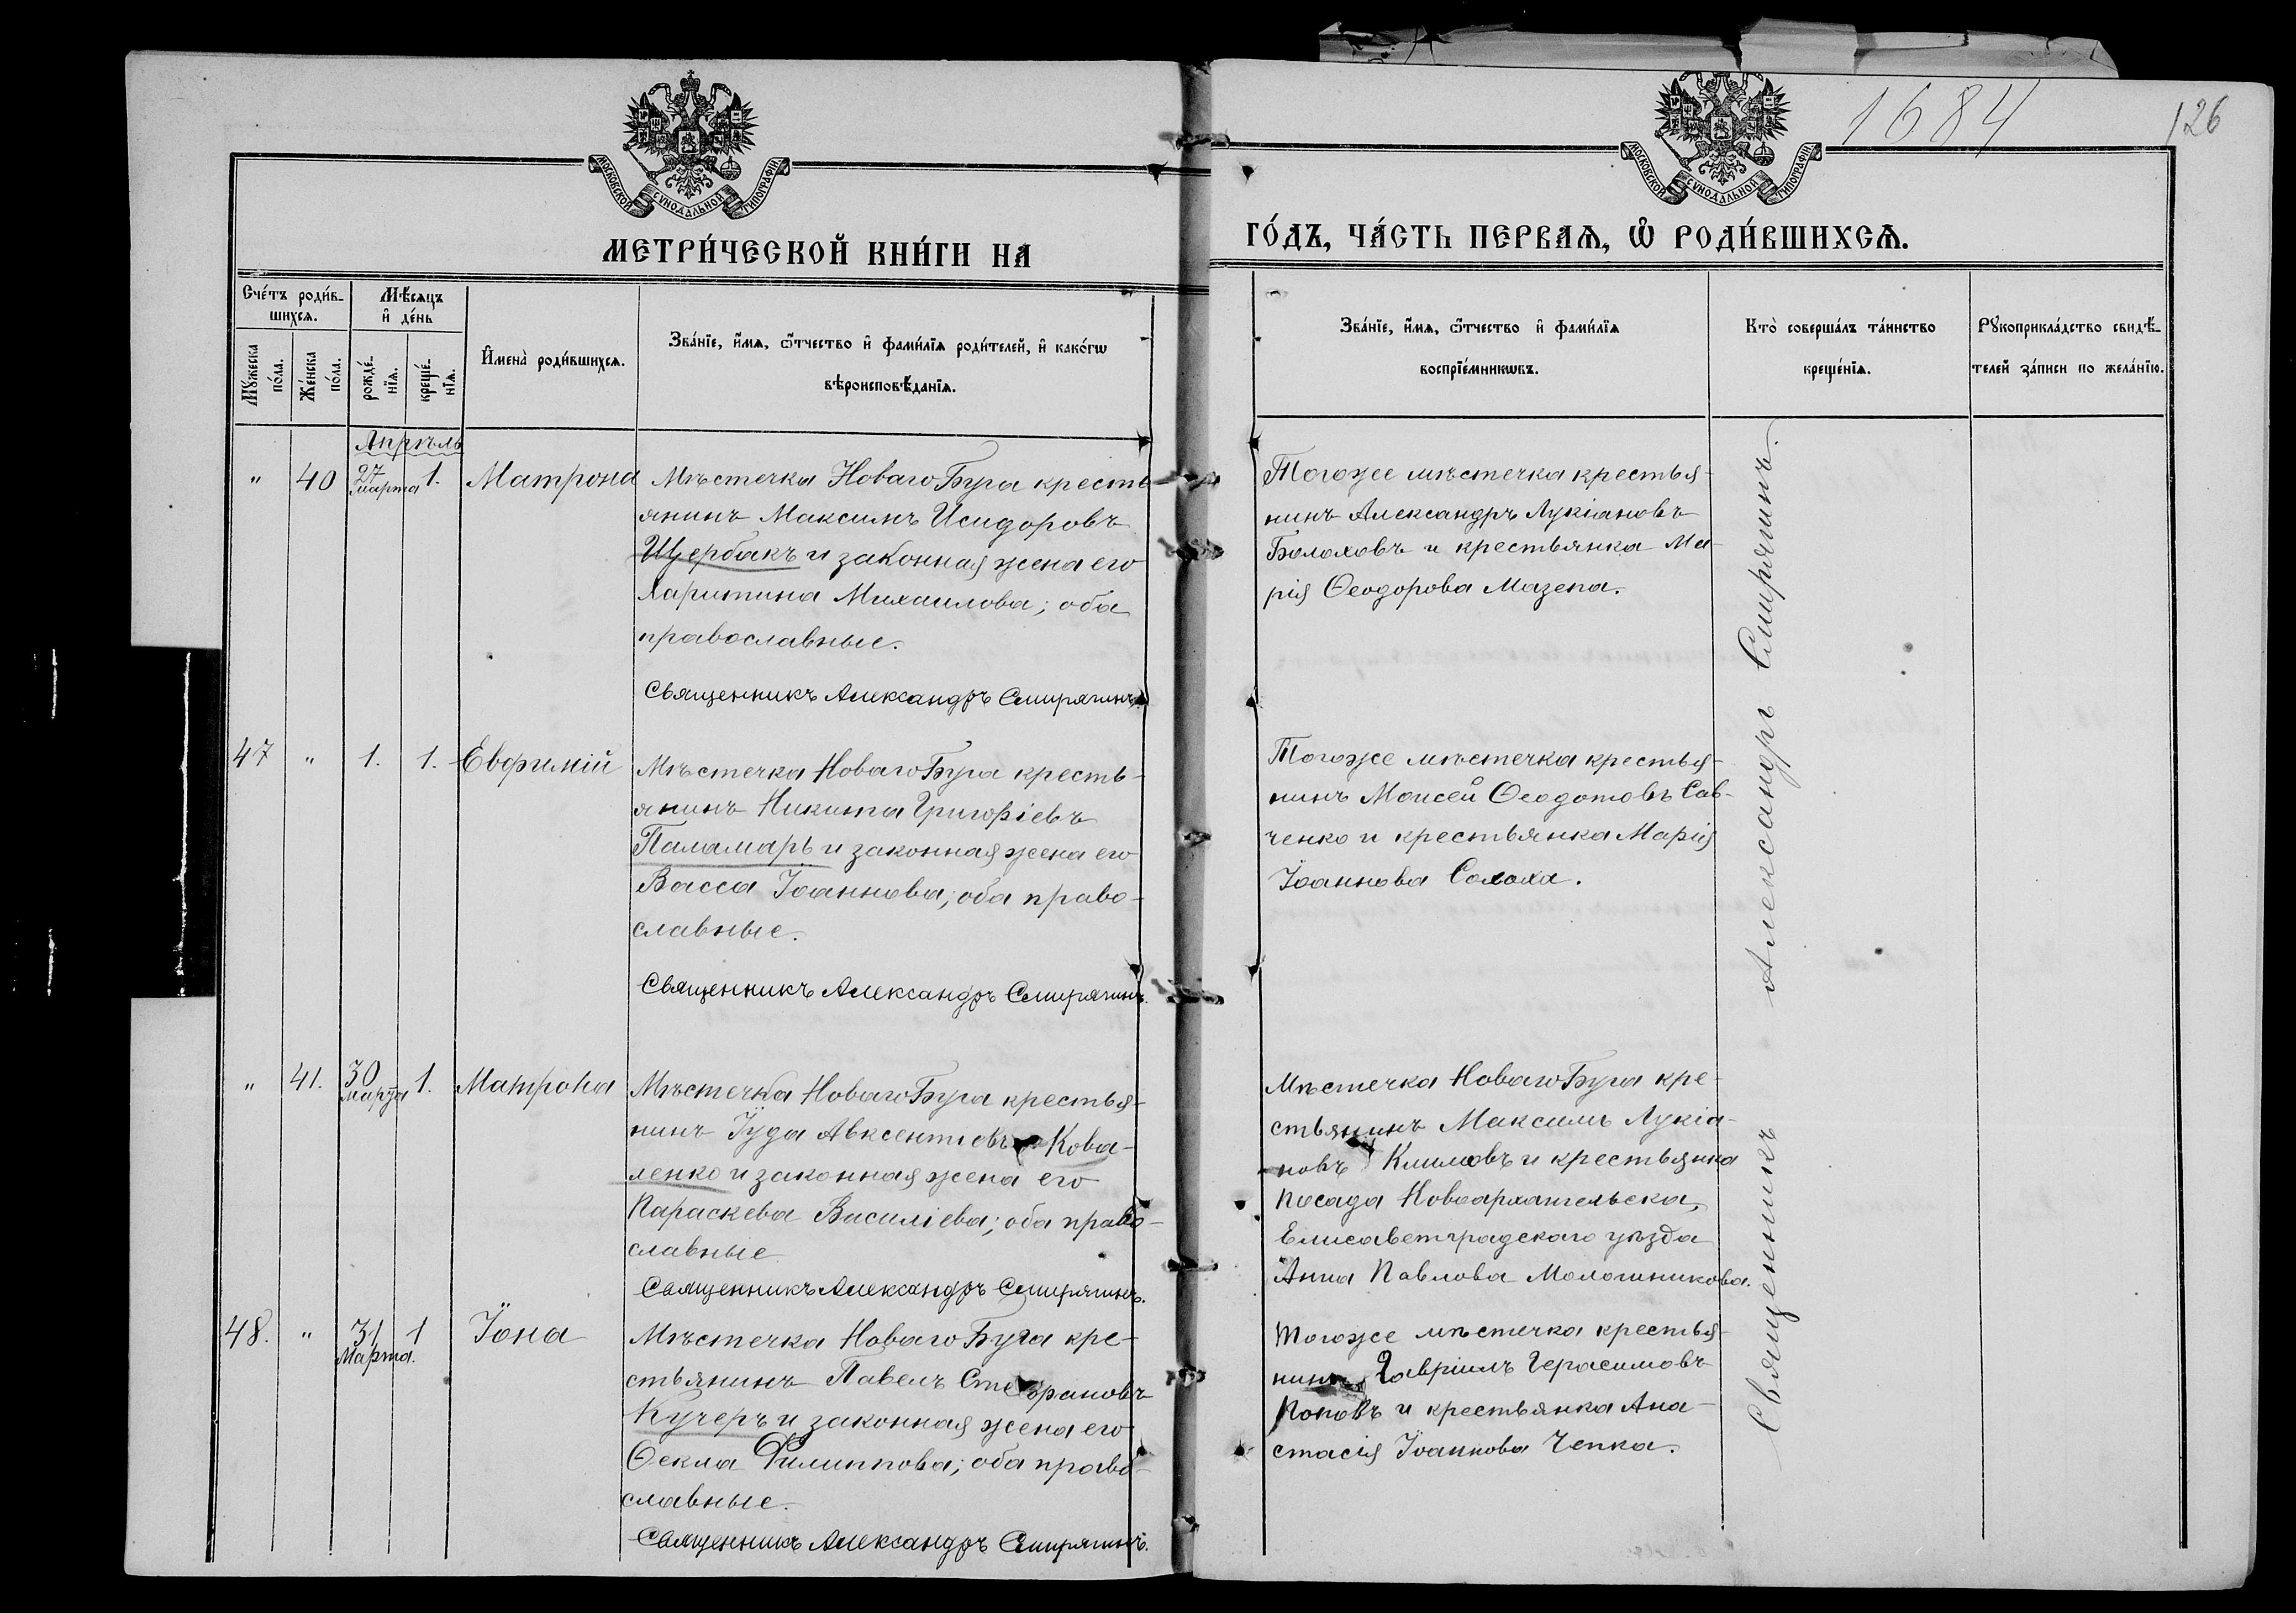 1684
126
МОСКОВСКОЙ СѴНОДАЛЬНОЙ ТИПОГРАФІИ
МОСКОВСКОЙ СѴНОДАЛЬНОЙ ТИПОГРАФІИ
МЕТРИ́ЧЕСКОЙ КНИ́ГИ НА
ГО́ДЪ, ЧА́СТЬ ПЕРВАѦ, Ѡ҆ РОДИ́ВШИХСѦ.
Сче́тъ роди́в-
шихсѧ.
Мѣ́сѧцъ
и҆ де́нь
Мꙋ́жеска
по́ла.
Же́нска
по́ла.
рожде́-
нїѧ.
креще́-
нїѧ.
И҆мена̀ роди́вшихсѧ.
Зва́нїе, и҆́мѧ, ѻ҆́тчество и҆ фами́лїѧ роди́телей, и҆ како́гѡ
вѣроисповѣ́данїѧ.
Зва́нїе, и҆́мѧ, ѻ҆́тчество и҆ фами́лїѧ
воспрїе́мникѡвъ.
Кто̀ соверша́лъ та́инство
креще́нїѧ.
Рꙋкоприкла́дство свидѣ́-
телей за́писи по жела́нїю.
Апрѣль
" 40 27 марта 1. Матрона
Мѣстечка Новаго Буга кресть-
янинъ Максимъ Исидоровъ
Щербакъ и законная жена его
Харитина Михаилова; оба
православные.
Священникъ Александръ Смирягинъ.
Тогоже мѣстечка крестья-
нинъ Александръ Лукіановъ
Болоховъ и крестьянка Ма-
рія Ѳеодорова Мазепа.
47 " 1. 1. Евфимій
Мѣстечка Новаго Буга кресть-
янинъ Никита Григоріевъ
Паламарь и законная жена его
Васса Іоаннова; оба право-
славные.
Священникъ Александръ Смирягинъ.
Тогоже мѣстечка крестья-
нинъ Моисей Ѳеодотовъ Сав-
ченко и крестьянка Марія
Іоаннова Солоха.
" 41. 30 марта 1. Матрона
Мѣстечка Новаго Буга крестья-
нинъ Іуда Авксентіевъ Кова-
ленко и законная жена его
Параскева Василіева; оба право-
славные
Священникъ Александръ Смирягинъ.
Мѣстечка Новаго Буга кре-
стьянинъ Максимъ Лукіа-
новъ Климовъ и крестьянка
посада Новоархангельска,
Елисаветградскаго уѣзда
Анна Павлова Молошникова.
48. " 31 Марта. 1 Іона
Мѣстечка Новаго Буга кре-
стьянинъ Павелъ Стефановъ
Кучеръ и законная жена его
Ѳекла Филиппова; оба право-
славные.
Священникъ Александръ Смирягинъ.
Тогоже мѣстечка крестья-
нинъ Гавріилъ Герасимовъ
Поповъ и крестьянка Ана-
стасія Іоаннова Чепка.
Священникъ Александръ Смирягинъ.